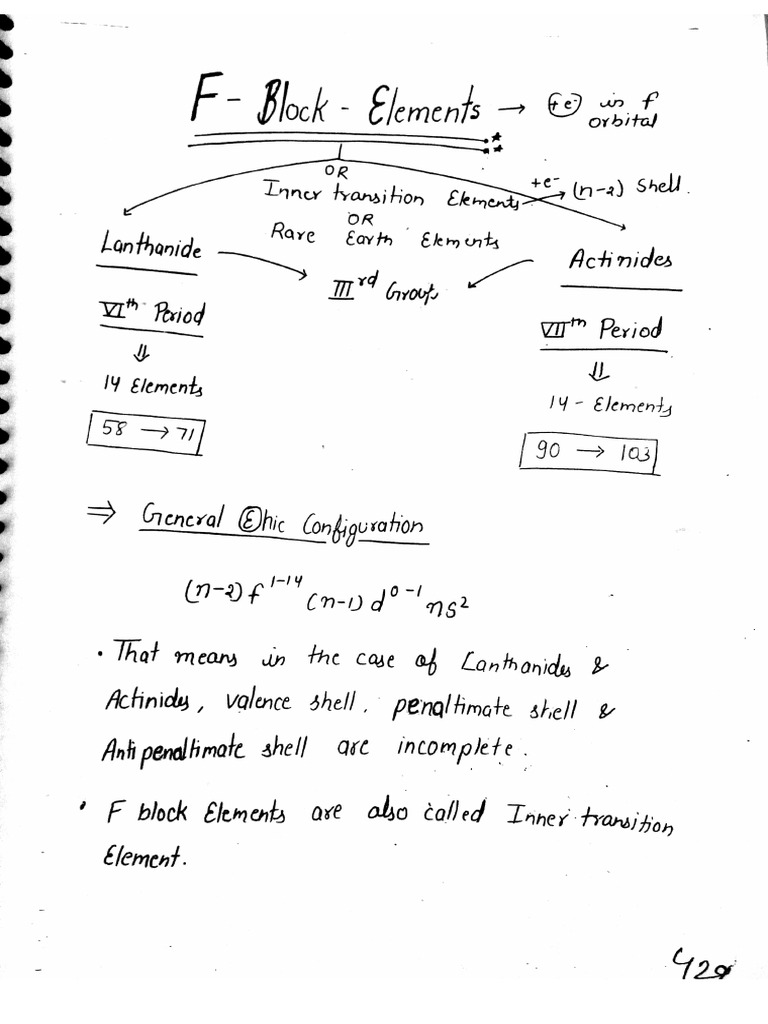 F - Block - Elements → +e⁻ in f
orbital
OR
Inner transition Elements +e⁻ → (n-2) Shell.
OR
Rare Earth Elements
Lanthanide
Actinides
IIIrd Group
VIth Period
VIIth Period
⇓
⇓
14 Elements
14 - Elements
58 → 71
90 → 103
⇒ General Ⓔnic Configuration
(n-2) f¹⁻¹⁴ (n-1) d⁰⁻¹ ns²
• That means in the case of Lanthanides &
Actinides, valence shell, penaltimate shell &
Anti penaltimate shell are incomplete.
• F block Elements are also called Inner transition
Element.